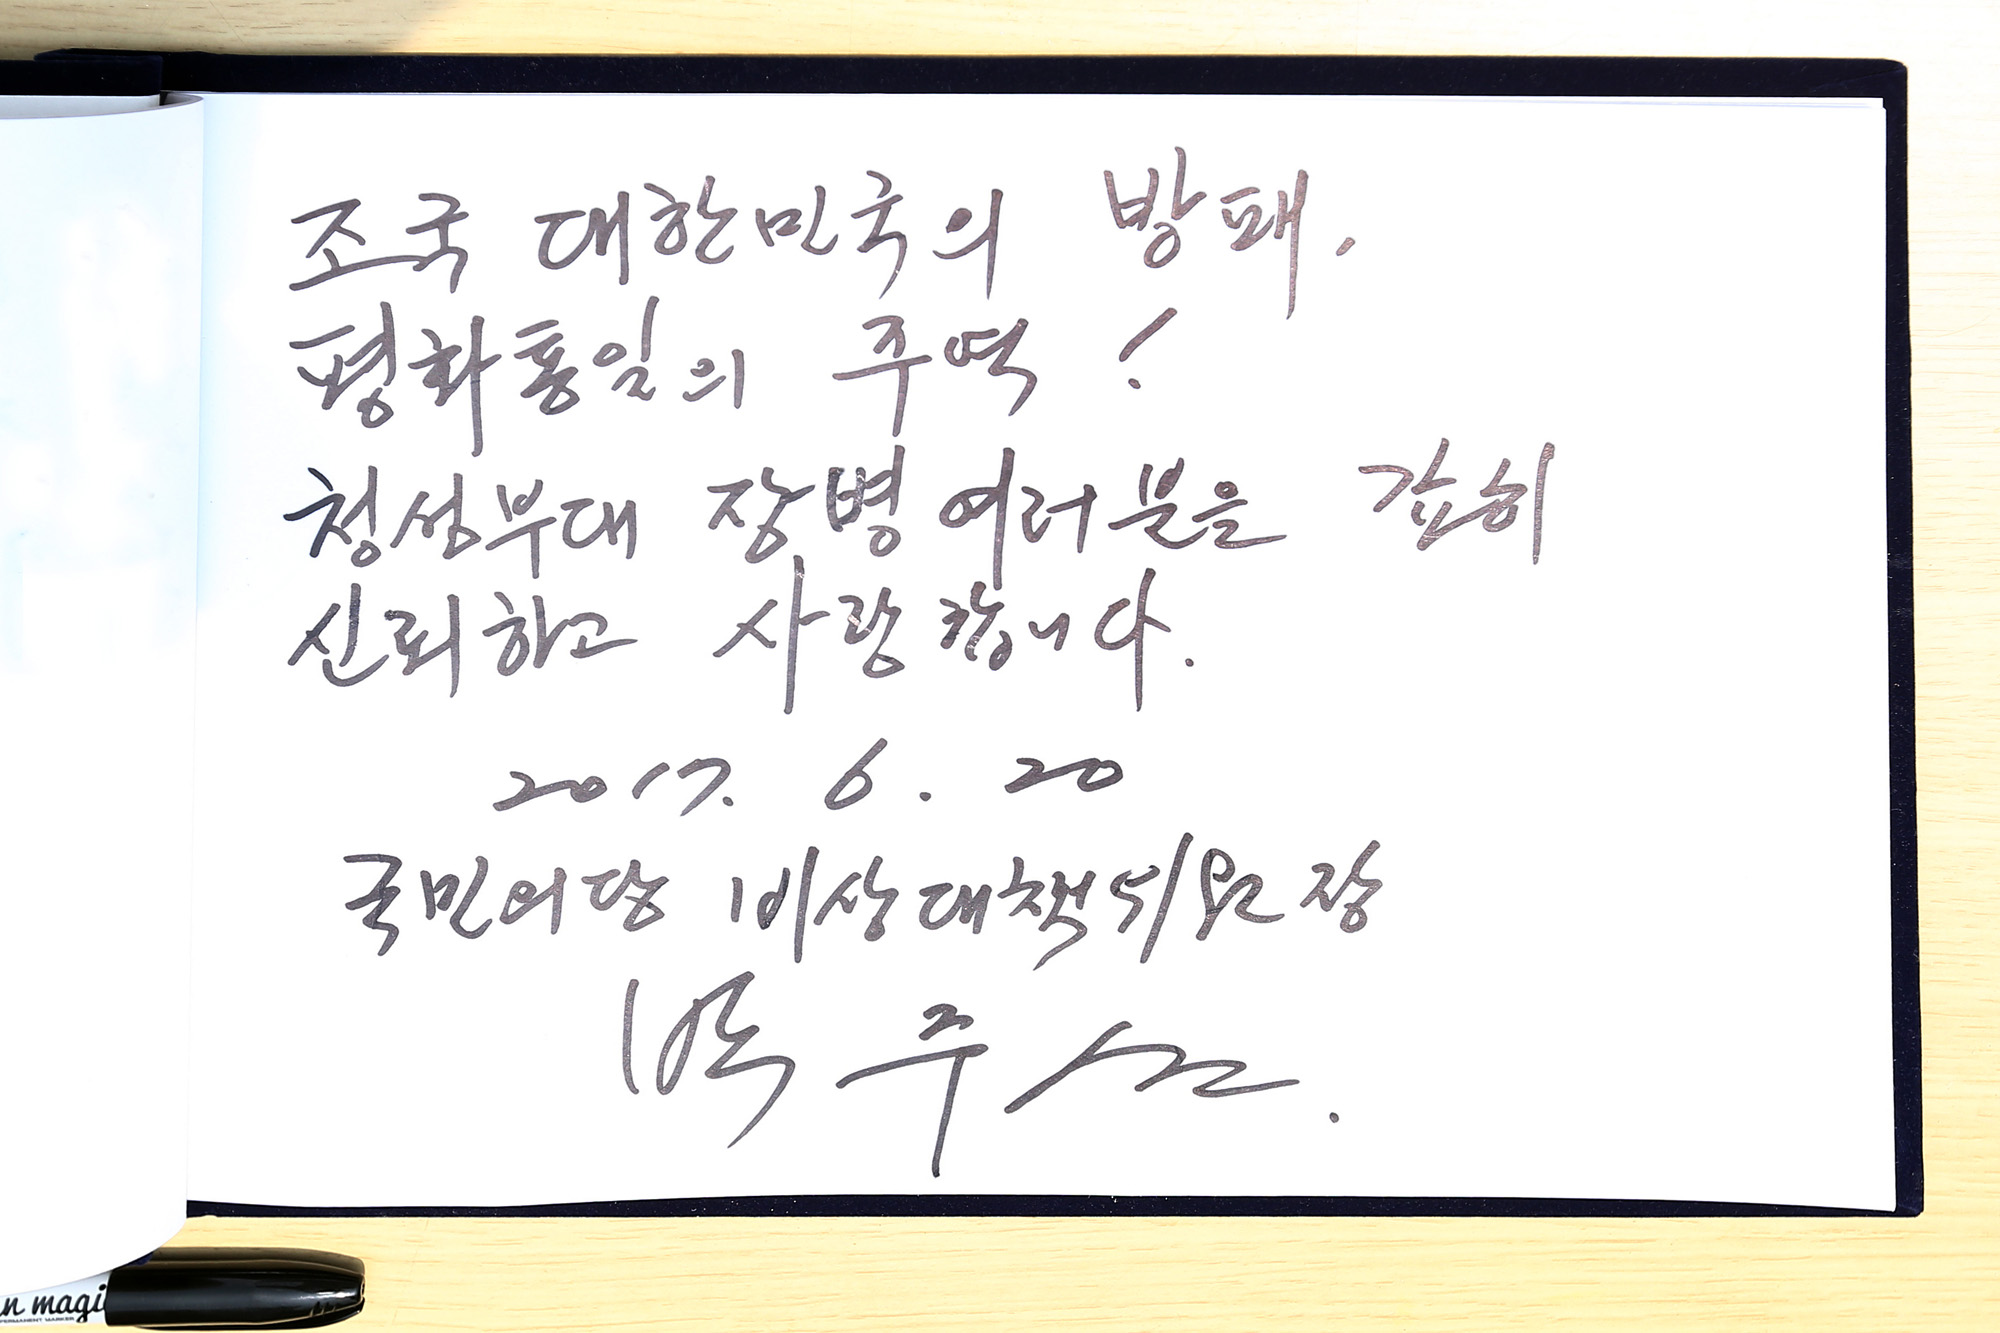 조국 대한민국의 방패,
평화통일의 주역!
청성부대 장병 여러분을 깊히
신뢰하고 사랑합니다.
2017. 6. 20
국민의당 비상대책위원장
박주선.
n magi
PERMANENT MARKER